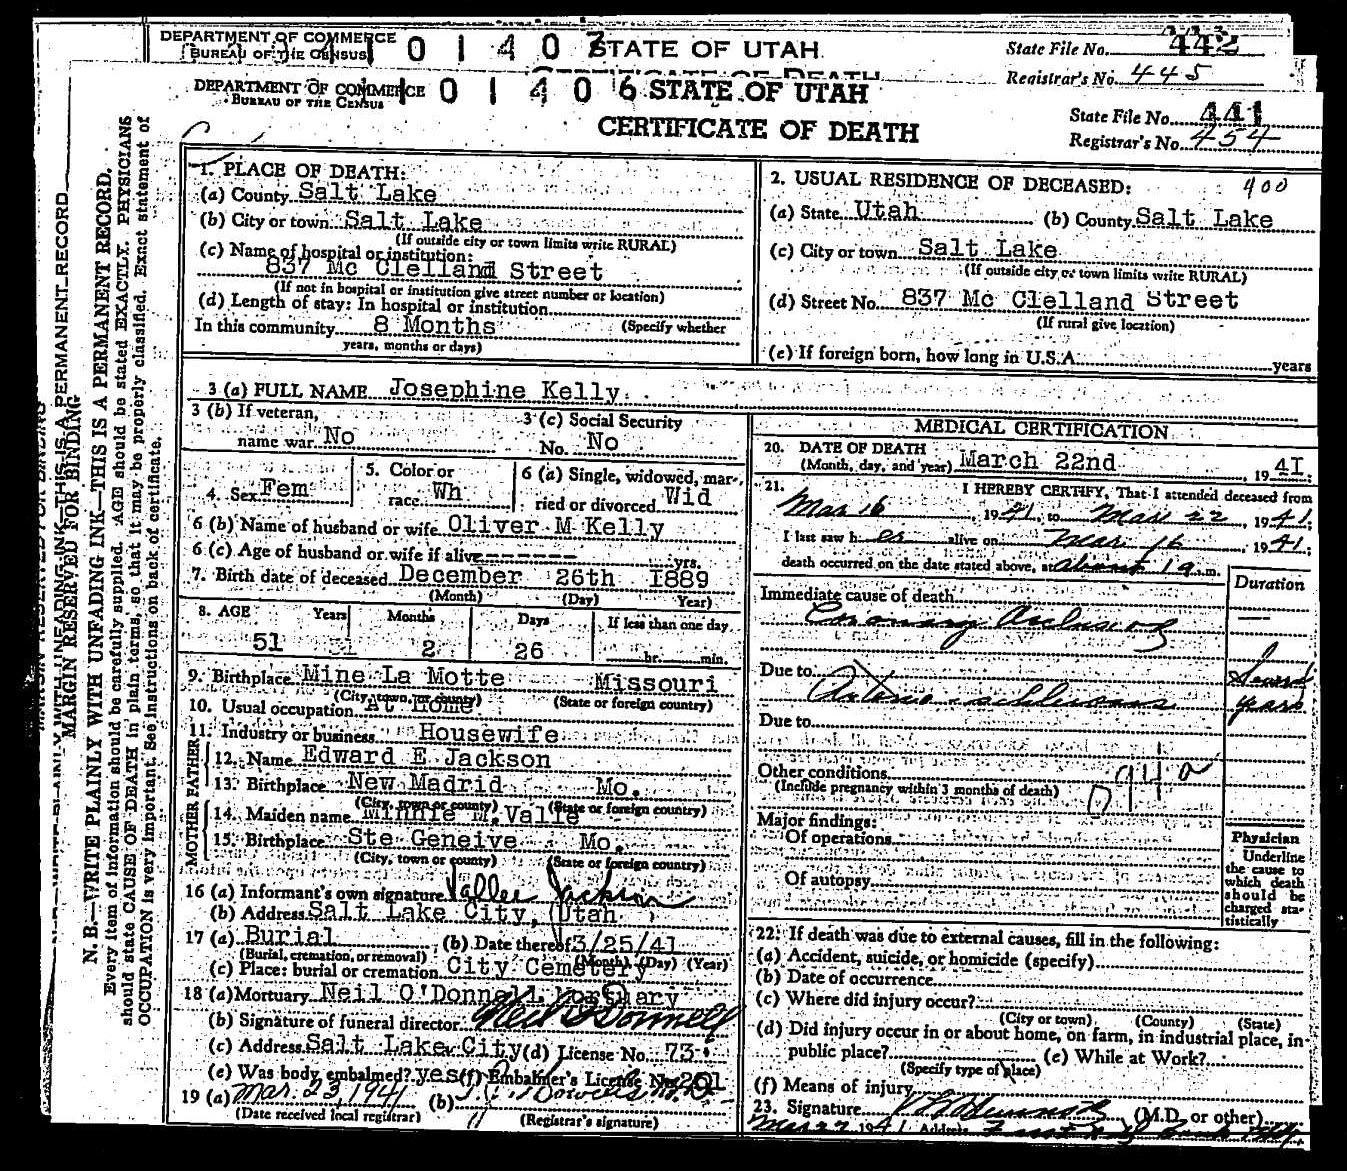 DEPARTMENT OF COMMERCE
BUREAU OF THE CENSUS
STATE OF UTAH
CERTIFICATE OF DEATH
State File No. 442
Registrar's No. 445
DEPARTMENT OF COMMERCE
BUREAU OF THE CENSUS
101406 STATE OF UTAH
CERTIFICATE OF DEATH
State File No. 441
Registrar's No. 454
MARGIN RESERVED FOR BINDING
N. B.—WRITE PLAINLY WITH UNFADING INK—THIS IS A PERMANENT RECORD.
Every item of information should be carefully supplied. AGE should be stated EXACTLY. PHYSICIANS
should state CAUSE OF DEATH in plain terms, so that it may be properly classified. Exact statement of
OCCUPATION is very important. See instructions on back of certificate.
1. PLACE OF DEATH:
(a) County Salt Lake
(b) City or town Salt Lake
(If outside city or town limits write RURAL)
(c) Name of hospital or institution:
837 Mc Clelland Street
(If not in hospital or institution give street number or location)
(d) Length of stay: In hospital or institution
In this community 8 Months (Specify whether
years, months or days)
2. USUAL RESIDENCE OF DECEASED: 900
(a) State Utah (b) County Salt Lake
(c) City or town Salt Lake
(If outside city or town limits write RURAL)
(d) Street No. 837 Mc Clelland Street
(If rural give location)
(e) If foreign born, how long in U.S.A. years
3 (a) FULL NAME Josephine Kelly
3 (b) If veteran,
name war No
3 (c) Social Security
No. No
4. Sex Fem
5. Color or
race Wh
6 (a) Single, widowed, mar-
ried or divorced Wid
6 (b) Name of husband or wife Oliver M Kelly
6 (c) Age of husband or wife if alive ------- yrs.
7. Birth date of deceased December 26th 1889
(Month) (Day) Year)
8. AGE Years Months Days If less than one day
51 2 26 hr. min.
9. Birthplace Mine La Motte Missouri
(City, town, or county) (State or foreign country)
10. Usual occupation At Home
11. Industry or business Housewife
FATHER
12. Name Edward E Jackson
13. Birthplace New Madrid Mo.
(City, town or county) (State or foreign country)
MOTHER
14. Maiden name Minnie M. Valle
15. Birthplace Ste Geneive Mo.
(City, town or county) (State or foreign country)
16 (a) Informant's own signature Vallee Jackson
(b) Address Salt Lake City, Utah
17 (a) Burial (b) Date thereof 3/25/41
(Burial, cremation, or removal) (Month) (Day) (Year)
(c) Place: burial or cremation City Cemetery
18 (a) Mortuary Neil O'Donnell Mortuary
(b) Signature of funeral director Neil O'Donnell
(c) Address Salt Lake City (d) License No. 73
(e) Was body embalmed? yes (f) Embalmer's License No. 201
19 (a) Mar. 23, 1941 (b)
(Date received local registrar) (Registrar's signature)
MEDICAL CERTIFICATION
20. DATE OF DEATH
(Month, day, and year) March 22nd, 1941;
21. I HEREBY CERTIFY, That I attended deceased from
Mar 16, 1941, to Mar 22, 1941;
I last saw her alive on Mar. 16, 1941;
death occurred on the date stated above, at about 1 a.m.
Duration
Immediate cause of death
Coronary Occlusion
Due to Arteriosclerosis
Several years
Due to
Other conditions
(Include pregnancy within 3 months of death)
094a
Major findings:
Of operations
Of autopsy
Physician
Underline
the cause to
which death
should be
charged sta-
tistically
22. If death was due to external causes, fill in the following:
(a) Accident, suicide, or homicide (specify)
(b) Date of occurrence
(c) Where did injury occur?
(City or town) (County) (State)
(d) Did injury occur in or about home, on farm, in industrial place, in
public place? (e) While at Work?
(Specify type of place)
(f) Means of injury
23. Signature (M.D. or other)
Mar 22 1941 Address